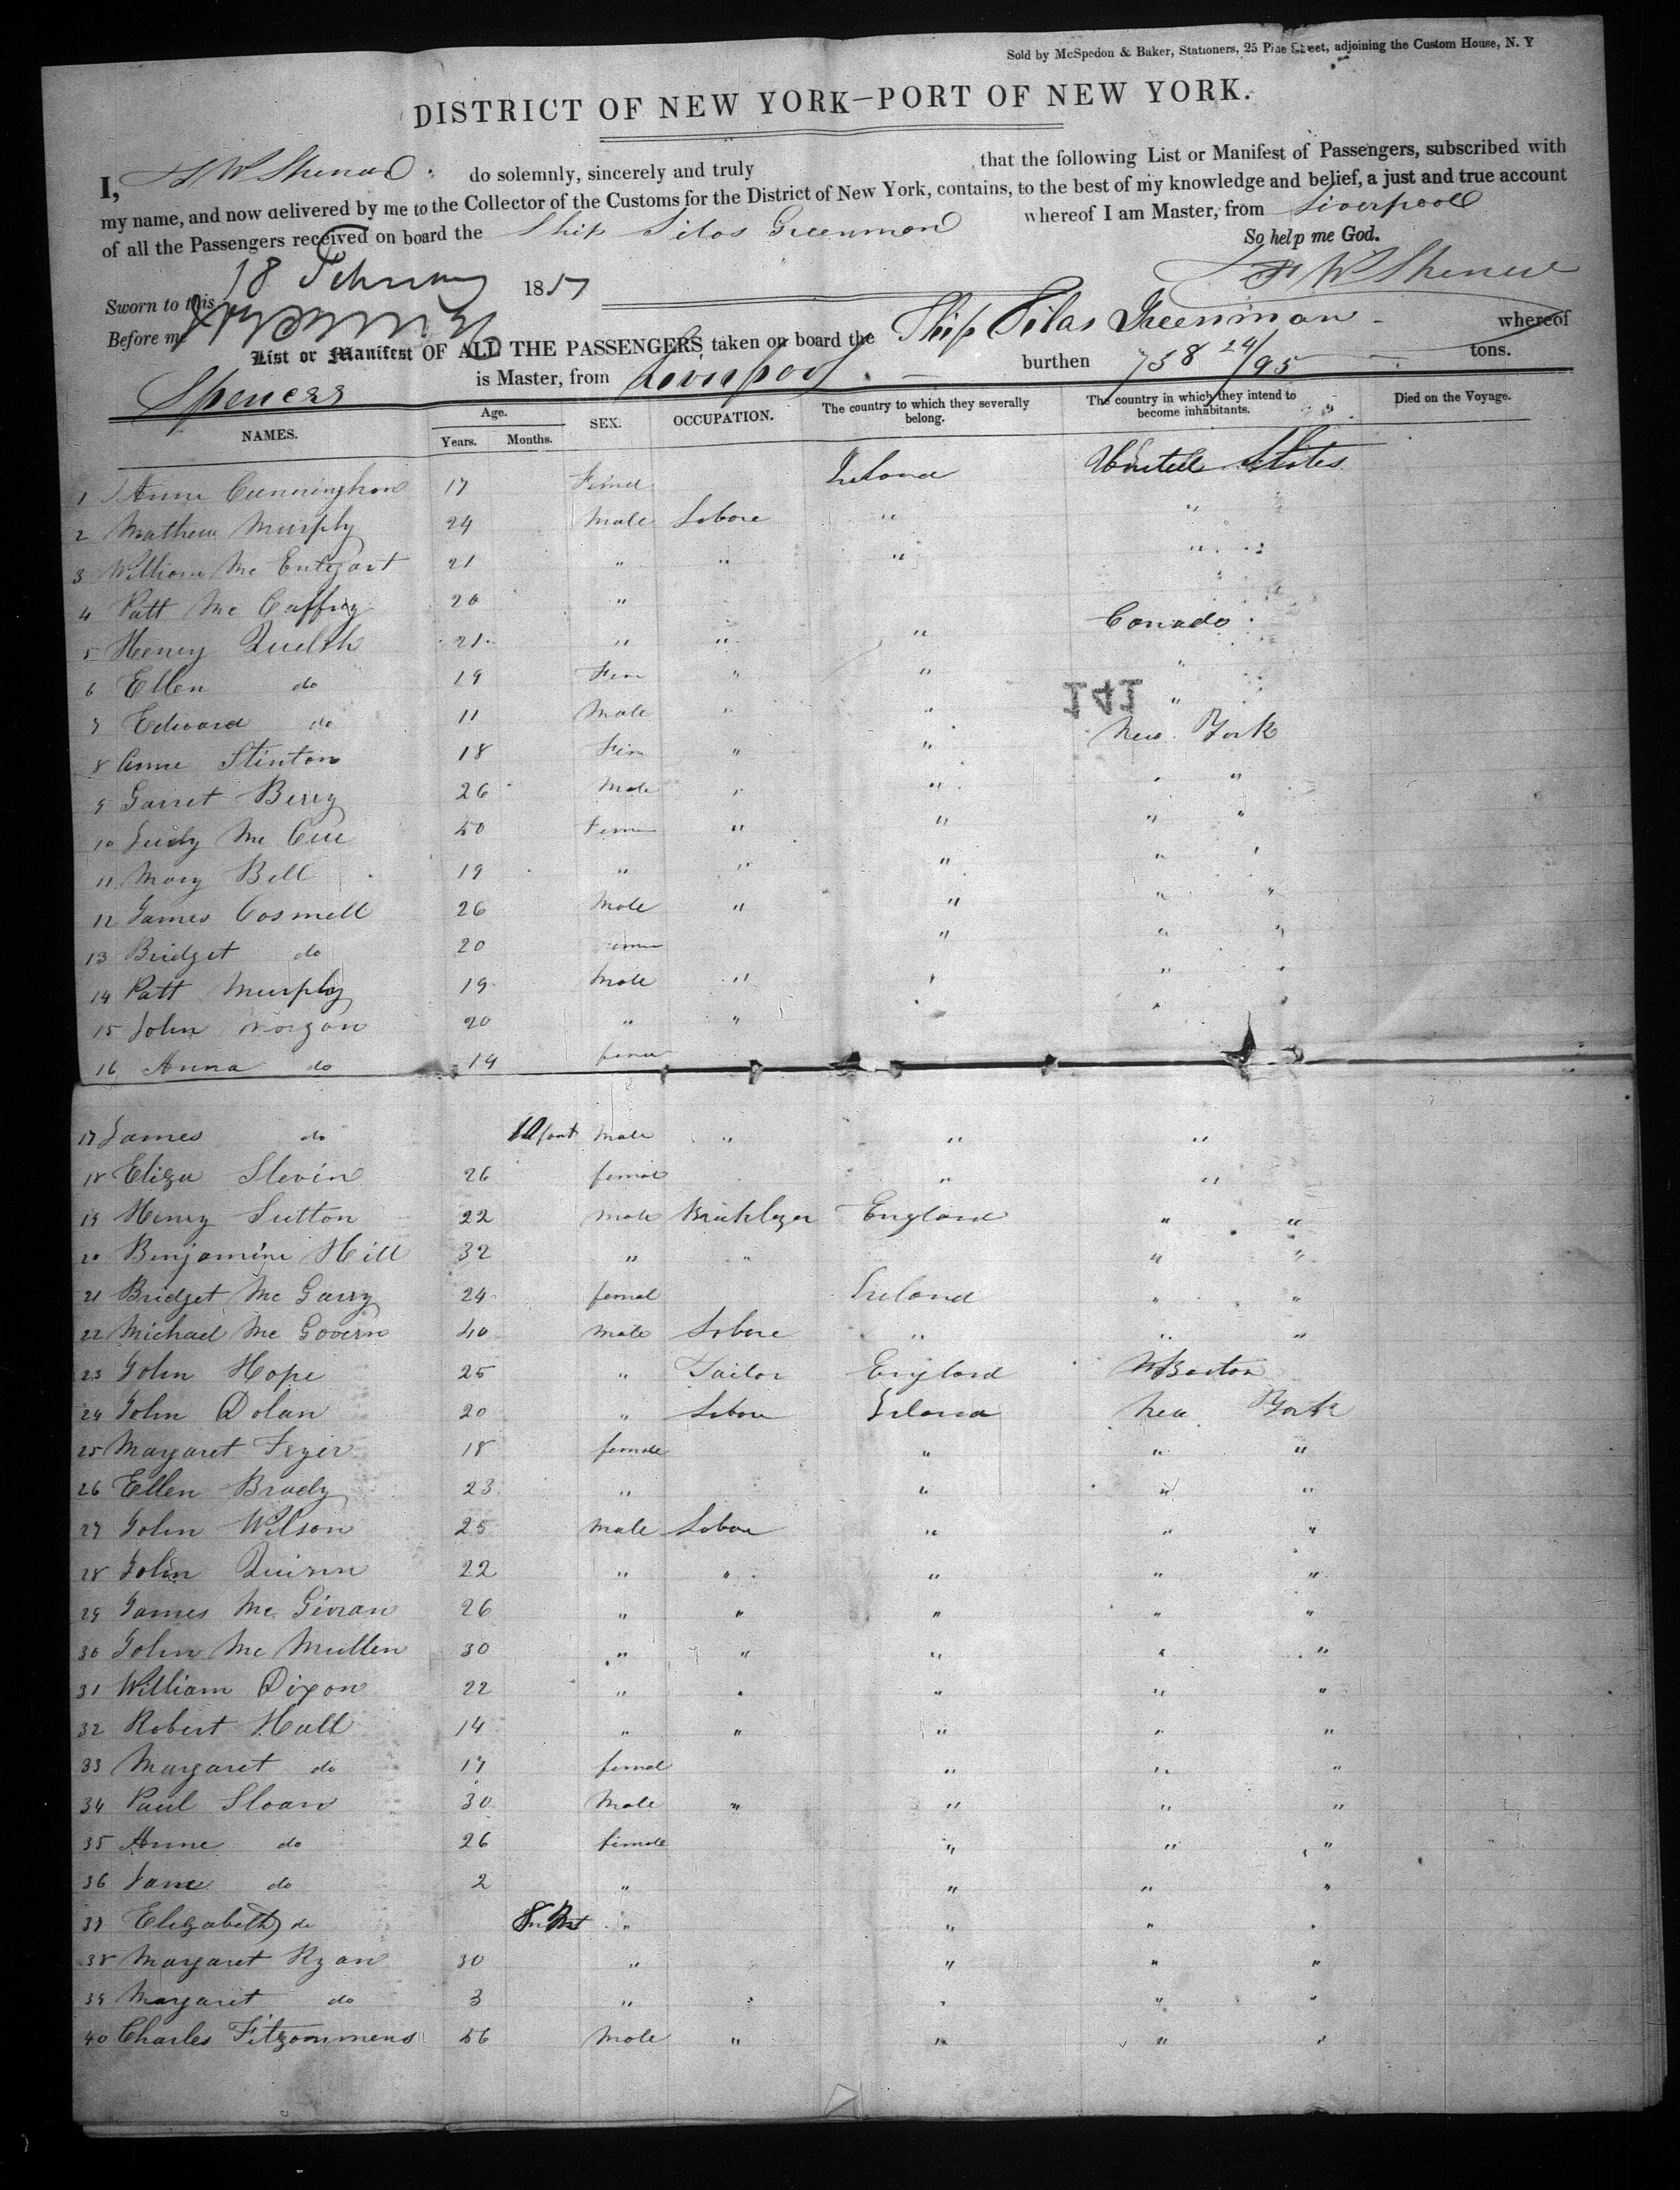 Sold by McSpedon & Baker, Stationers, 25 Pine Street, adjoining the Custom House, N. Y
DISTRICT OF NEW YORK—PORT OF NEW YORK.
I, do solemnly, sincerely and truly that the following List or Manifest of Passengers, subscribed with
my name, and now delivered by me to the Collector of the Customs for the District of New York, contains, to the best of my knowledge and belief, a just and true account
of all the Passengers received on board the Ship Silas Greenman whereof I am Master, from Liverpool
So help me God.
Sworn to this 18 February 1851
Before me
List or Manifest OF ALL THE PASSENGERS taken on board the Ship Silas Greenman whereof
Spencer is Master, from Liverpool burthen 758 24/95 tons.
NAMES. Age. Years. Months. SEX. OCCUPATION. The country to which they severally belong. The country in which they intend to become inhabitants. Died on the Voyage.
1 Anne Cunningham 17 Femel Ireland United States
2 Mathew Murphy 24 Male Labore " "
3 William Mc Entegart 21 " " " "
4 Patt Mc Caffrey 20 "
5 Henry Quelch 21 " " " Canada
6 Ellen do 19 Fem " " "
7 Edward do 11 Male " " "
141
8 Anne Stinton 18 Fem " " New York
9 Garret Berry 26 Male " " " "
10 Judy Mc Cue 50 Feme " " " "
11 Mary Bell 19 " " " " "
12 James Cosmell 26 Male " " " "
13 Bridget do 20 Feme " " "
14 Patt Murphy 19 Male " " " "
15 John Morgan 20 " " " "
16 Anna do 19 feme
17 James do Infant Male " " "
18 Eliza Slevin 26 femal " "
19 Henry Sutton 22 Male Bricklayer England " "
20 Benjamine Hill 32 " " " "
21 Bridget Mc Garry 24 femal Ireland " "
22 Michael Mc Govern 40 Male Labore " " "
23 John Hope 25 " Tailor England Boston
24 John Dolan 20 " Labore Ireland New York
25 Margaret Fryer 18 female " " "
26 Ellen Brady 23 " " " "
27 John Wilson 25 Male Labore " " "
28 John Quinn 22 " " " " "
29 James Mc Givran 26 " " " " "
30 John Mc Mullen 30 " " " " "
31 William Dixon 22 " " " " "
32 Robert Hall 14 " " " " "
33 Margaret do 17 femal " " "
34 Paul Sloan 30 Male " " " "
35 Anne do 26 female " " "
36 Jane do 2 " " " "
37 Elizabeth do " " " "
38 Margaret Ryan 30 " " " "
39 Margaret do 3 " " " " "
40 Charles Fitzommens 56 Male " " " "